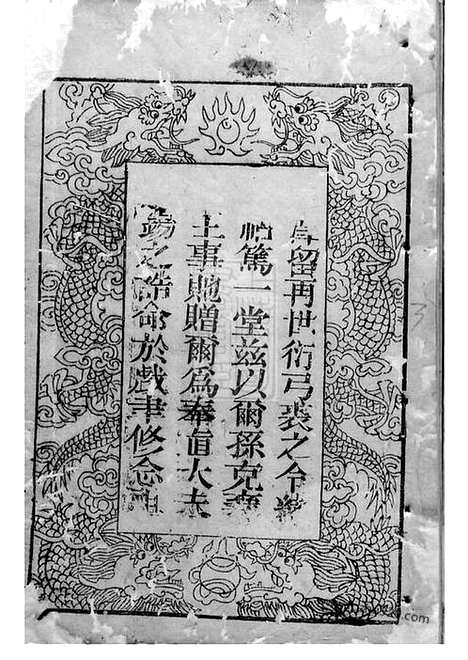 留再世衍弓裘之令緒
祜篤一堂兹以爾孫克襄
王事貤贈爾爲奉直大夫
錫之誥命於戲聿修念祖
3